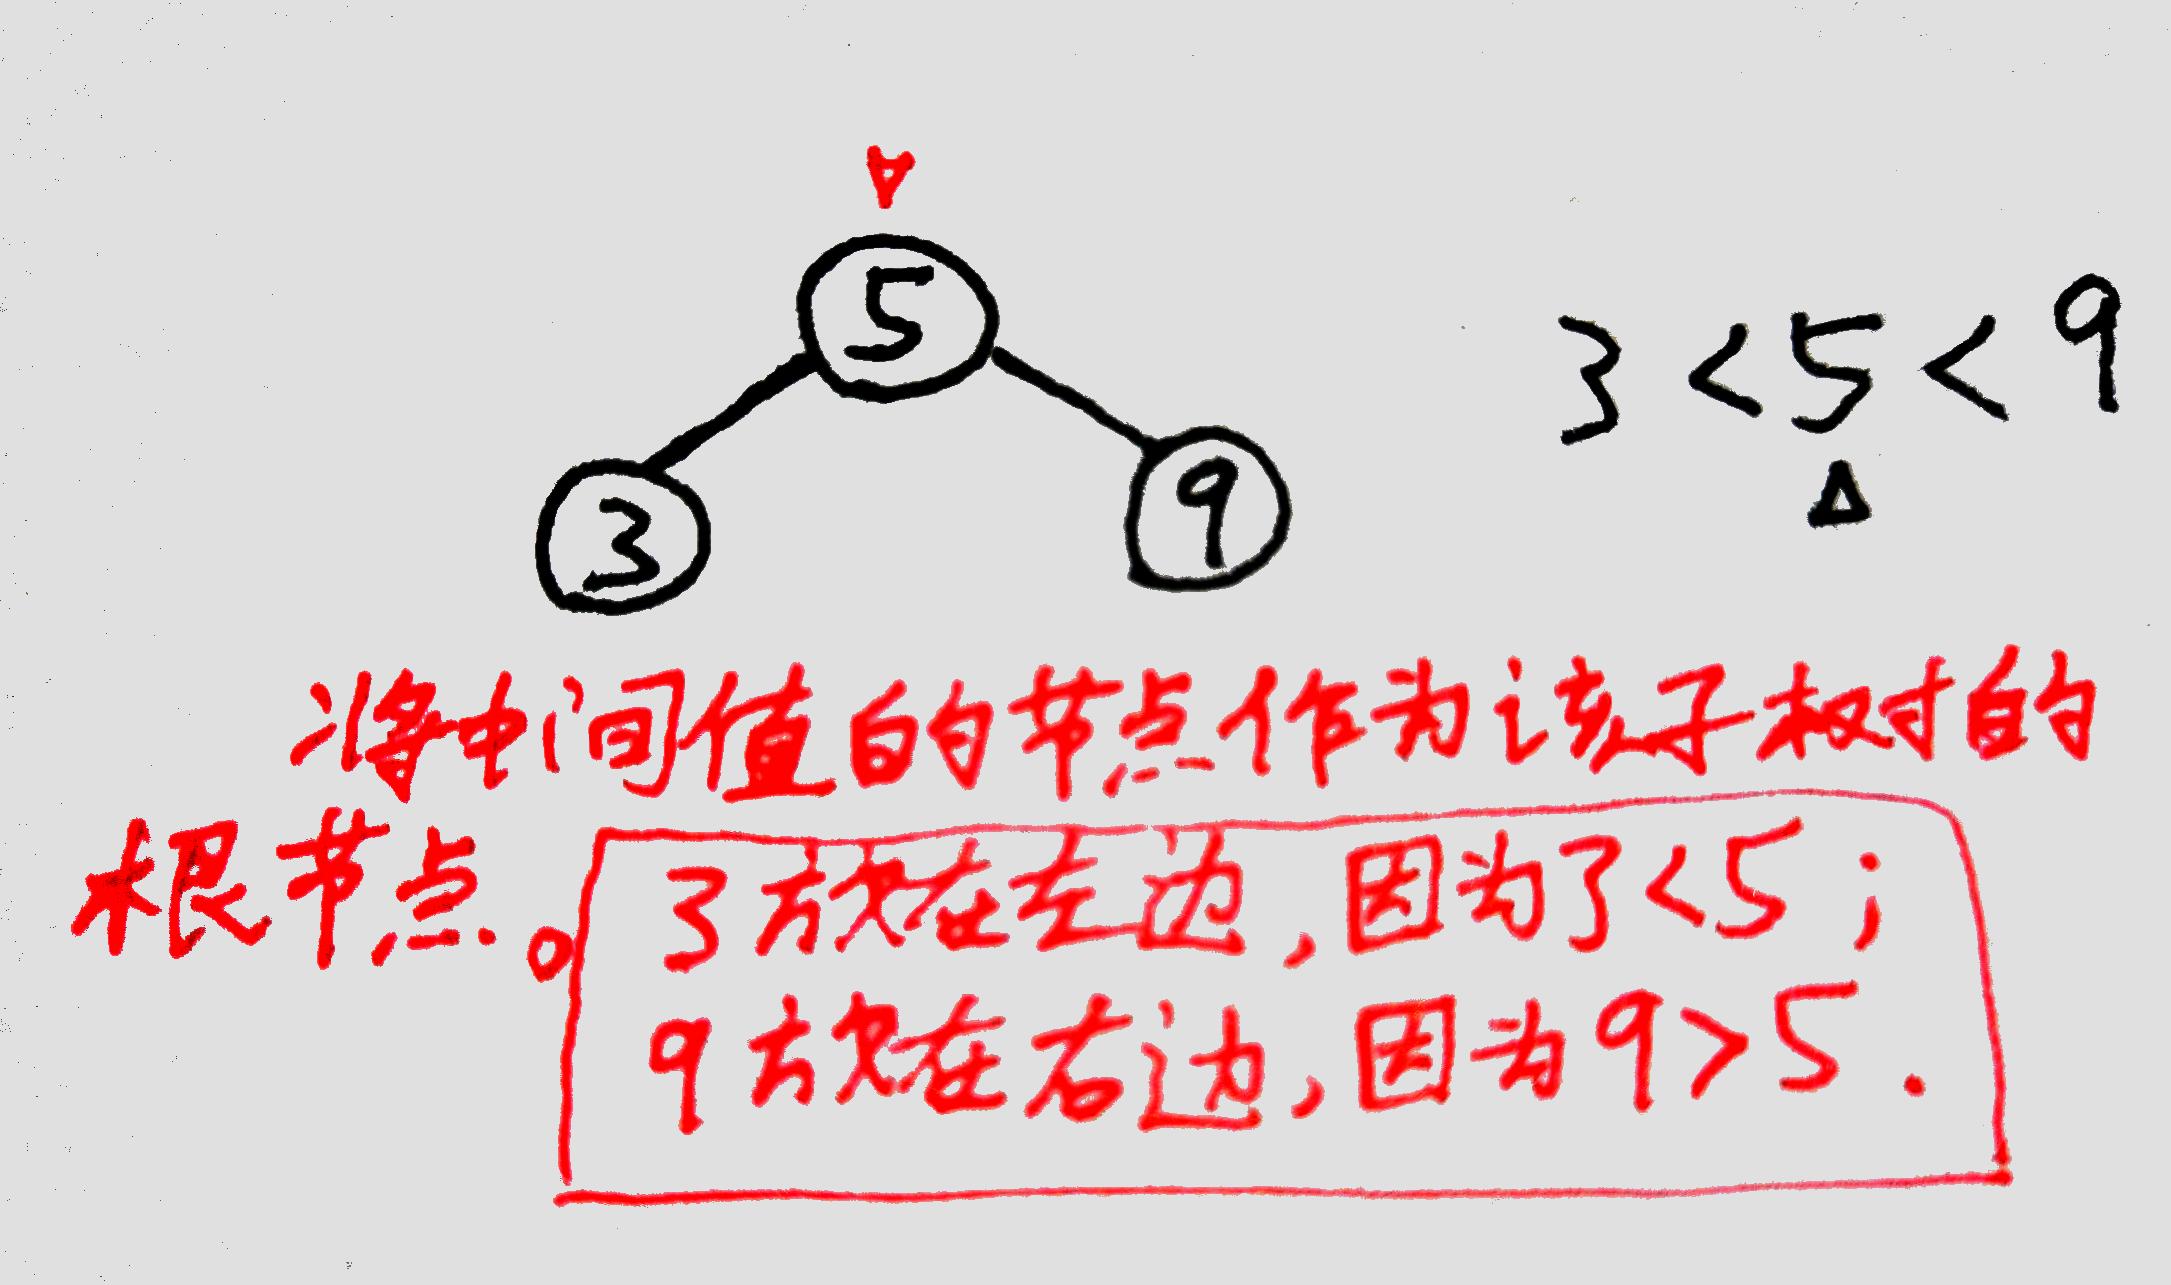 5
3 < 5 < 9
3
9
将中间值的节点作为该子树的
根节点。
3放在左边,因为3<5;
9放在右边,因为9>5.